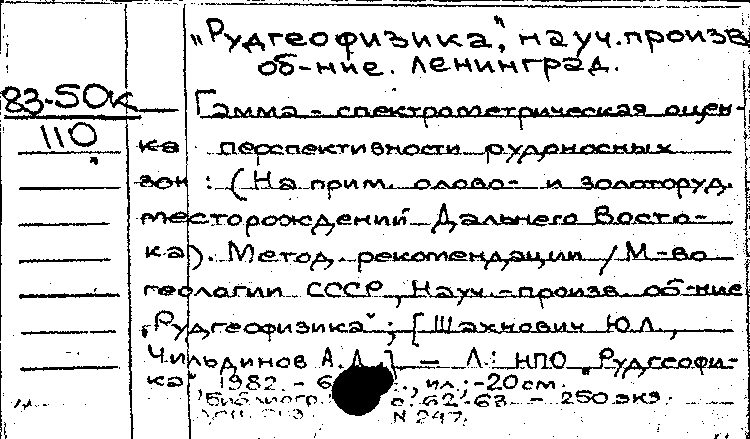 „Рудгеофизика", науч.произв
об-ние. Ленинград.
83-50к
110
Гамма-спектрометрическая оцен-
ка перспективности рудоносных
зон : (На прим. олово- и золоторуд.
месторождений Дальнего Восто-
ка). Метод. рекомендации / М-во
геологии СССР, Науч.-произв. об-ние
„Рудгеофизика"; [Шахнович Ю.Л.,
Чильдинов А.Л.] – Л.: НПО „Рудгеофи-
ка" 1982. - 6 , ил.; -20см.
Библиогр. с. 62-63 - 250 экз.
N 247.